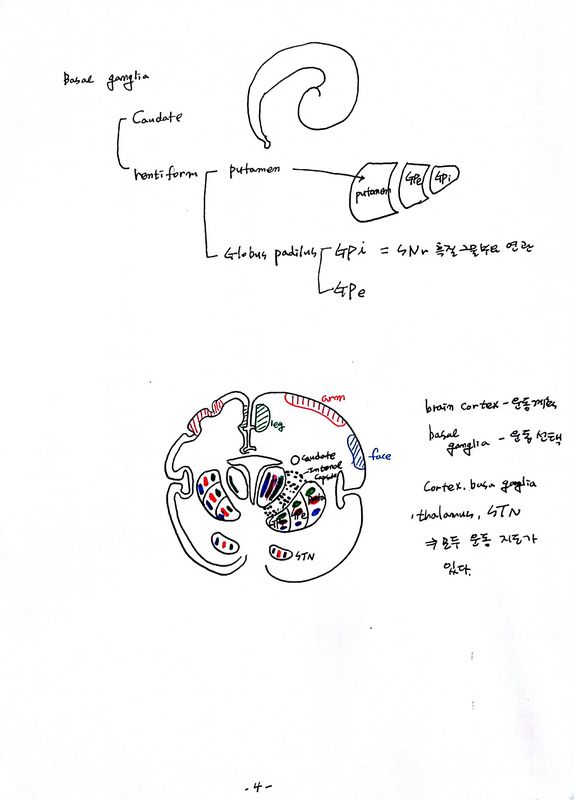 Basal ganglia
Caudate
lentiform
putamen
putamen
GPe
GPi
Globus padilus
GPi = SNr 흑질그물부와 연관
GPe
arm
leg
face
caudate
Internal
capsule
GPe
GPi
STN
brain cortex - 운동계획
basal
ganglia - 운동 선택
Cortex. basa ganglia
, thalamus, STN
⇒ 모두 운동 지도가
있다.
- 4 -